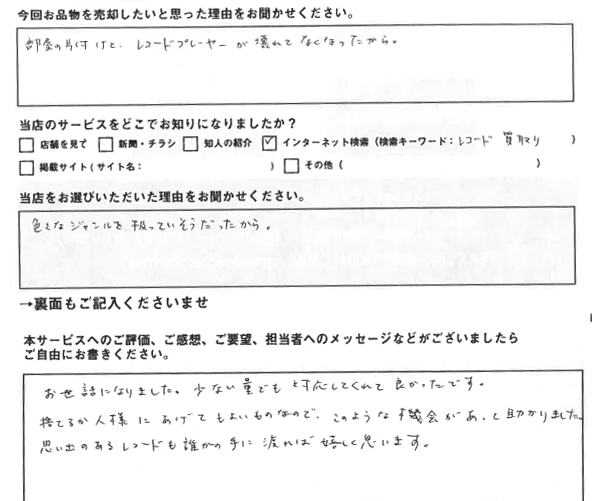 今回お品物を売却したいと思った理由をお聞かせください。
部屋の片付けと、レコードプレーヤーが壊れてなくなったから。
当店のサービスをどこでお知りになりましたか？
□ 店舗を見て □ 新聞・チラシ □ 知人の紹介 ☑ インターネット検索（検索キーワード：レコード 買取り ）
□ 掲載サイト（サイト名： ） □ その他（ ）
当店をお選びいただいた理由をお聞かせください。
色々なジャンルを扱っていそうだったから。
→裏面もご記入くださいませ
本サービスへのご評価、ご感想、ご要望、担当者へのメッセージなどがございましたら
ご自由にお書きください。
お世話になりました。少ない量でも対応してくれて良かったです。
捨てるか人様にあげてもよいものなので、このような機会があって助かりました。
思い出のあるレコードも誰かの手に渡れば嬉しく思います。